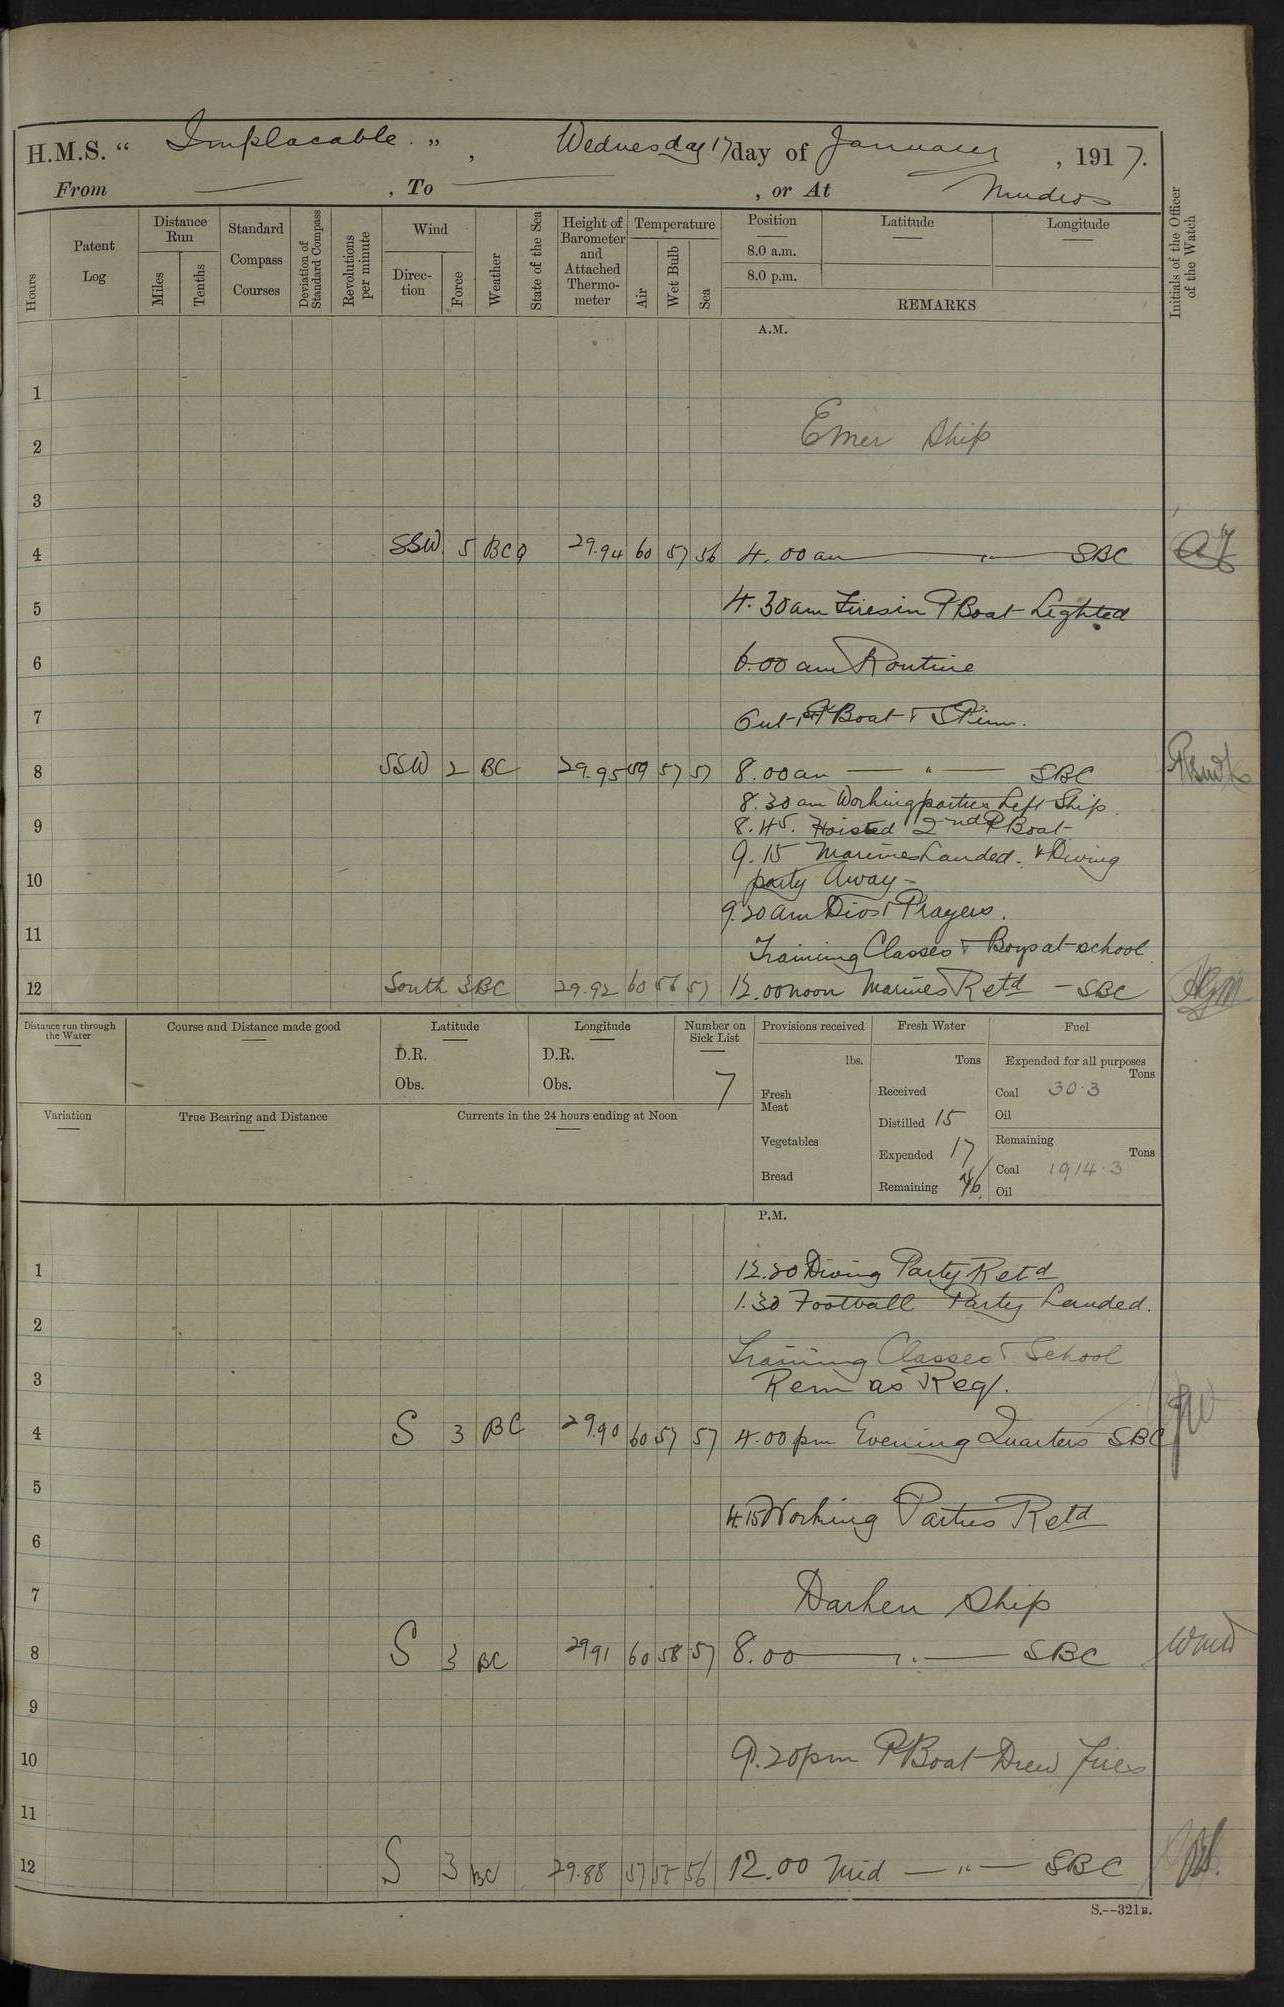 H.M.S. “ Implacable. ” , Wednesday 17 day of January , 1917.
From — , To — , or At Mudros
Hours
Patent Log
Distance Run
Miles
Tenths
Standard Compass Courses
Deviation of Standard Compass
Revolutions per minute
Wind
Direction
Force
Weather
State of the Sea
Height of Barometer and Attached Thermometer
Temperature
Air
Wet Bulb
Sea
Position
8.0 a.m.
8.0 p.m.
Latitude
Longitude
REMARKS
Initials of the Officer of the Watch
A.M.
1
2 Ship
3
4 SSW 5 BCQ 29.94 60 57 56 4.00 am — „ — SBC
5 4.30 am Fires in P Boat Lighted
6 6.00 am Routine
7 Out P Boat & S Pinn.
8 SSW 2 BC 29.95 59 57 57 8.00 am — " — SBC
8.30 am Working parties Left Ship
9 8.45. Hoisted 2nd P Boat
9.15 Marines Landed. & Diving
10 party Away
9.20 am Divs & Prayers.
11 Training Classes & Boys at school
12 South 3 BC 29.92 60 56 57 12.00 noon Marines Retd - SBC
Distance run through the Water
Course and Distance made good
Latitude
D.R.
Obs.
Longitude
D.R.
Obs.
Number on Sick List
7
Variation
True Bearing and Distance
Currents in the 24 hours ending at Noon
Provisions received
lbs.
Fresh Meat
Vegetables
Bread
Fresh Water
Tons
Received
Distilled 15
Expended 17
Remaining 46
Fuel
Expended for all purposes
Tons
Coal 30.3
Oil
Remaining
Tons
Coal 1914.3
Oil
P.M.
1 12.20 Diving Party Retd
1.30 Football Party Landed.
2
Training Classes & School
3 Rem as Req/.
4 S 3 BC 29.90 60 57 57 4.00 pm Evening Quarters SBC
5
4.15 Working Parties Retd
6
7 Darken Ship
8 S 3 BC 29.91 60 58 57 8.00 — „ — SBC
9
10 9.20 pm P Boat Drew fires
11
12 S 3 BC 29.88 57 55 56 12.00 Mid — " — SBC
S.--321B.